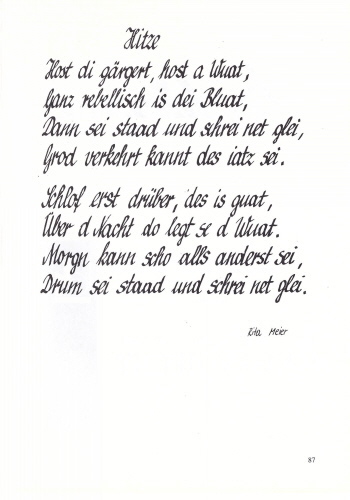 Hitze
Host di gärgert, host a Wuat,
Ganz rebellisch is dei Bluat,
Dann sei staad und shrei net glei,
Grod verkehrt kannt des iatz sei.
Schlof erst drüber, des is guat,
Über d Nacht do legt se d Wuat.
Morgn kann scho alls anderst sei,
Drum sei staad und schrei net glei.
Rita Meier
87